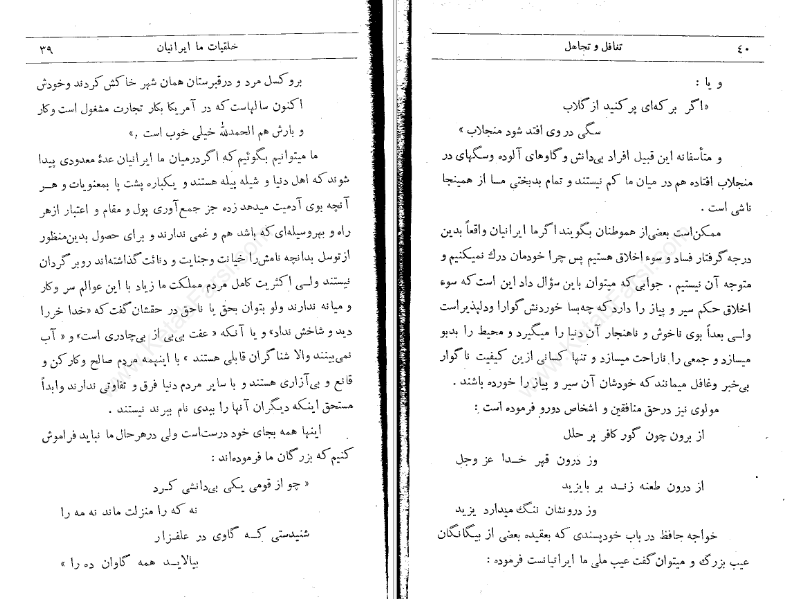 ۳۹ خلقیات ما ایرانیان
بروکسل مرد و درقبرستان همان شهر خاکش کردند وخودش
اکنون سالهاست که در آمریکا بکار تجارت مشغول است وکار
و بارش هم الحمدلله خیلی خوب است .»
ما میتوانیم بگوئیم که اگر درمیان ما ایرانیان عدهٔ معدودی پیدا
شوند که اهل دنیا و شیله پیله هستند و یکباره پشت پا بمعنویات و هـر
آنچه بوی آدمیت میدهد زده جز جمع‌آوری پول و مقام و اعتبار ازهر
راه و بهروسیله‌ای که باشد هم و غمی ندارند و برای حصول بدین‌منظور
ازتوسل بدانچه نامش‌را خیانت وجنایت و دنائت گذاشته‌اند روبرگردان
نیستند ولـی اکثریت کامل مردم مملکت ما زیاد با این عوالم سر وکار
و میانه ندارند ولو بتوان بحق یا ناحق در حقشان گفت که «خدا خررا
دید و شاخش نداد» و یا آنکه « عفت بی‌بی از بی‌چادری است» و « آب
نمی‌بینند والا شناگران قابلی هستند » با اینهمه مردم صالح وکارکن و
قانع و بی‌آزاری هستند و با سایر مردم دنیا فرق و تفاوتی ندارند وابداً
مستحق اینکه دیگران آنها را ببدی نام ببرند نیستند .
اینها همه بجای خود درست‌است ولی درهرحال ما نباید فراموش
کنیم که بزرگان ما فرموده‌اند :
« چو از قومی یکی بی‌دانشی کرد
نه که را منزلت ماند نه مه را
شنیدستی کـه گاوی در علفزار
بیالایـد همه گاوان ده را »
تغافل و تجاهل ۴۰
و یا :
«اگر برکه‌ای پرکنید از گلاب
سگی در وی افتد شود منجلاب »
و متأسفانه این قبیل افراد بی‌دانش و گاوهای آلوده وسگهای در
منجلاب افتاده هم در میان ما کم نیستند و تمام بدبختی مـا از همینجا
ناشی است .
ممکن‌است بعضی‌از هموطنان بگویند اگرما ایرانیان واقعاً بدین
درجه گرفتار فساد و سوء اخلاق هستیم پس چرا خودمان درك نمیکنیم و
متوجه آن نیستیم . جوابی که میتوان باین سؤال داد این است که سوء
اخلاق حکم سیر و پیاز را دارد که چه‌بسا خوردنش گوارا ودلپذیراست
ولـی بعداً بوی ناخوش و ناهنجار آن دنیا را میگیرد و محیط را بدبو
میسازد و جمعی را ناراحت میسازد و تنها کسانی ازین کیفیت ناگوار
بی‌خبر وغافل میمانند که خودشان آن سیر و پیاز را خورده باشند .
مولوی نیز درحق منافقین و اشخاص دورو فرموده است :
از برون چون گور کافر پر حلل
وز درون قهر خـدا عز وجل
از درون طعنه زنـد بر بایزید
وز درونشان ننگ میدارد یزید
خواجه حافظ در باب خودپسندی که بعقیده بعضی از بیگانگان
عیب بزرگ و میتوان گفت عیب ملی ما ایرانیانست فرموده :